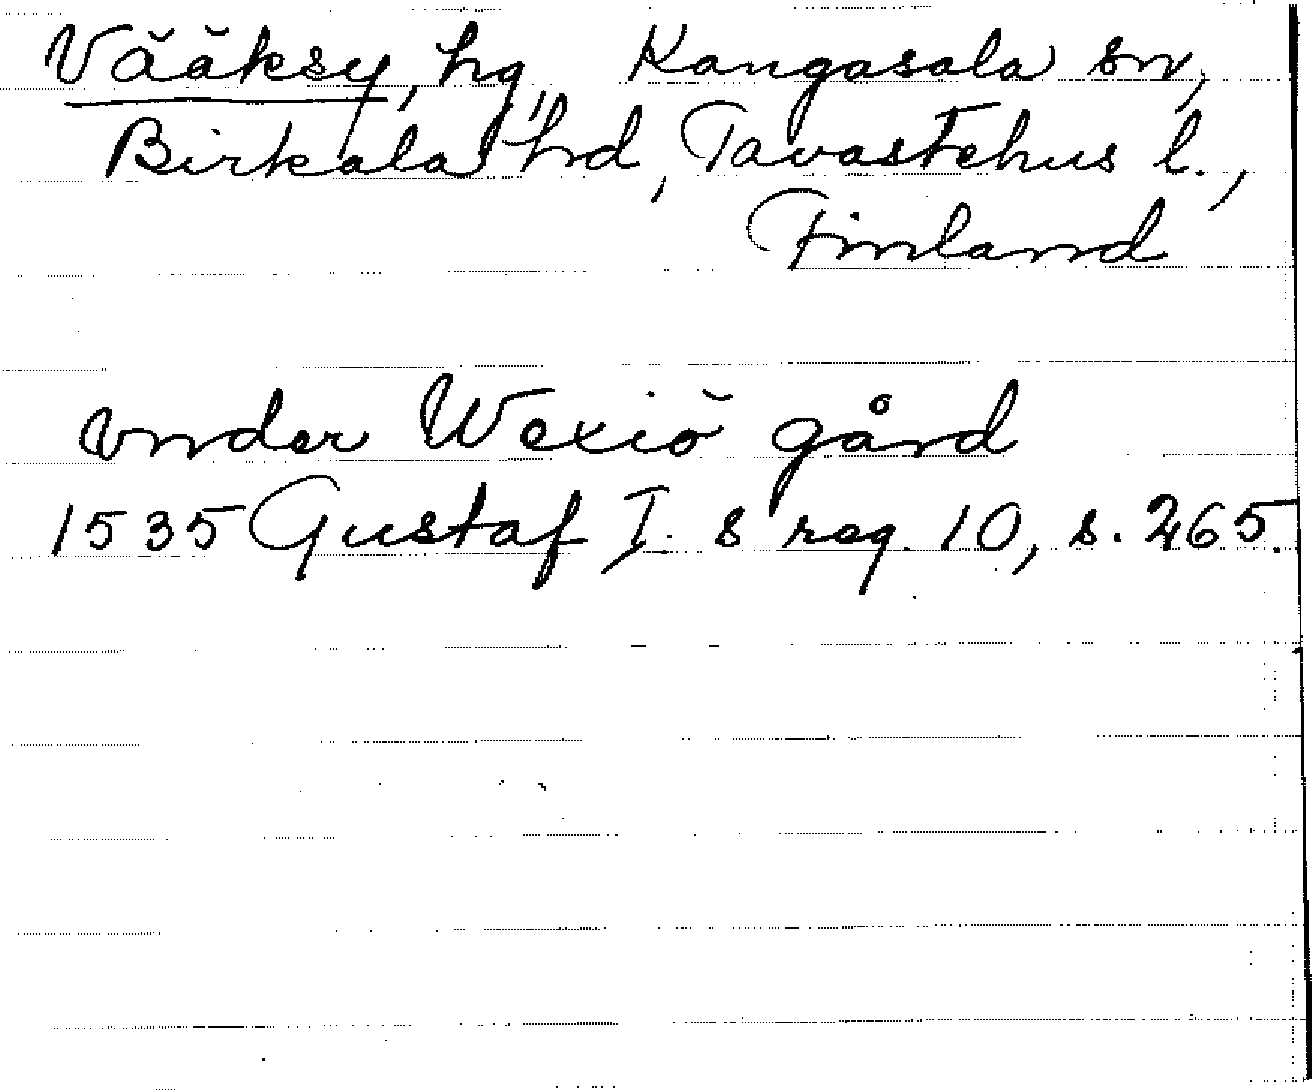 Vääksy, hg, Kangasala sn,
Birkala hd, Tavastehus l.,
Finland
vnder Wexiö gård
1535 Gustaf I. s reg. 10, s. 265.